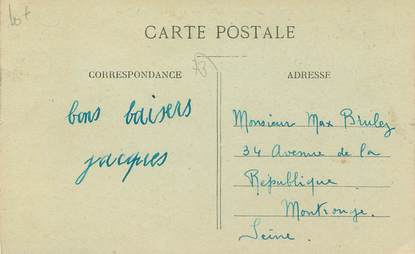 lot
CARTE POSTALE
CORRESPONDANCE
ADRESSE
bons baisers
Jacques
Monsieur Max Bruley
34 Avenue de la
République.
Montrouge.
Seine.